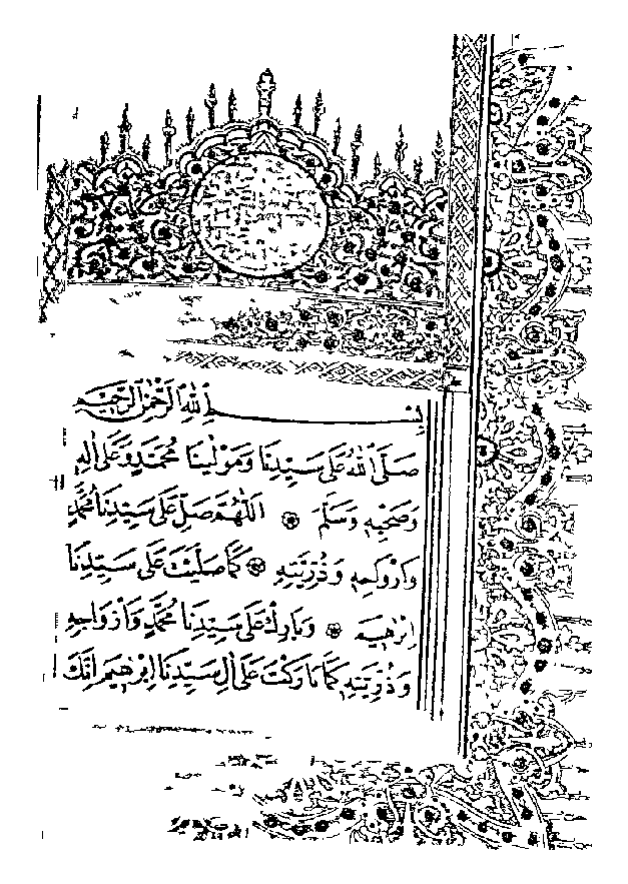 بِسْمِ اللهِ الرَّحْمٰنِ الرَّحِيْمِ
صَلَّى اللهُ عَلَى سَيِّدِنَا وَمَوْلٰينَا مُحَمَّدٍ وَعَلَى اٰلِهِ
وَصَحْبِهِ وَسَلَّمَ ۞ اَللّٰهُمَّ صَلِّ عَلَى سَيِّدِنَا مُحَمَّدٍ
وَاَزْوَاجِهِ وَذُرِّيَّتِهِ ۞ كَمَا صَلَّيْتَ عَلَى سَيِّدِنَا
اِبْرٰهِيمَ ۞ وَبَارِكْ عَلَى سَيِّدِنَا مُحَمَّدٍ وَاَزْوَاجِهِ
وَذُرِّيَّتِهِ كَمَا بَارَكْتَ عَلَى اٰلِ سَيِّدِنَا اِبْرٰهِيمَ اِنَّكَ